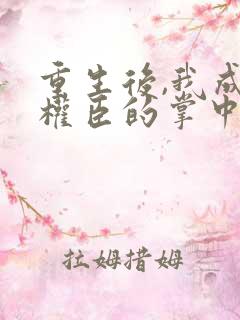 重生後,我成
權臣的掌中
拉姆措姆